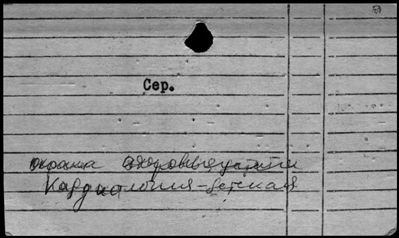 Сер.
охрана здоровье детей
Кардиология-детская